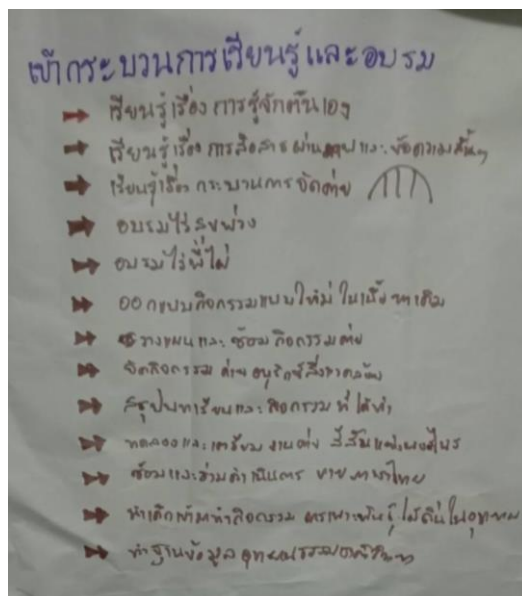 เข้ากระบวนการเรียนรู้และอบรม
เรียนรู้เรื่อง การรู้จักตัวเอง
เรียนรู้เรื่อง การสื่อสาร ผ่านภาพและ ข้อความสั้นๆ
เรียนรู้เรื่อง กระบวนการ จัดค่าย
อบรมไร่สุขพ่วง
อบรมไร่พี่ไผ่
ออกแบบกิจกรรมแบบใหม่ ในเนื้อหาเดิม
วางแผนและ ซ้อม กิจกรรมค่าย
จัดกิจกรรม ค่าย อนุรักษ์สิ่งแวดล้อม
สรุปบทเรียนและ กิจกรรม ที่ได้ทำ
ทดลองและเตรียม งานค่าย สีสันแห่งพงไพร
ซ้อมและร่วมดำเนินการ ค่าย ภาษาไทย
นำเด็กเข้ามาทำกิจกรรม การเพาะพันธุ์ไม้ถิ่นในอุทยาน
ทำฐานข้อมูล อุทยานธรรมชาติวิทยา